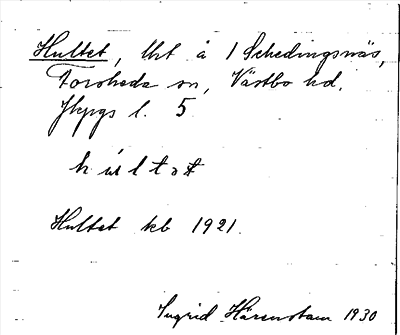 Hultet, lht å 1 Schedingsnäs,
Forsheda sn, Västbo hd,
Jkpgs l. 5
hultət
Hultet kb 1921.
Ingrid Härenstam 1930